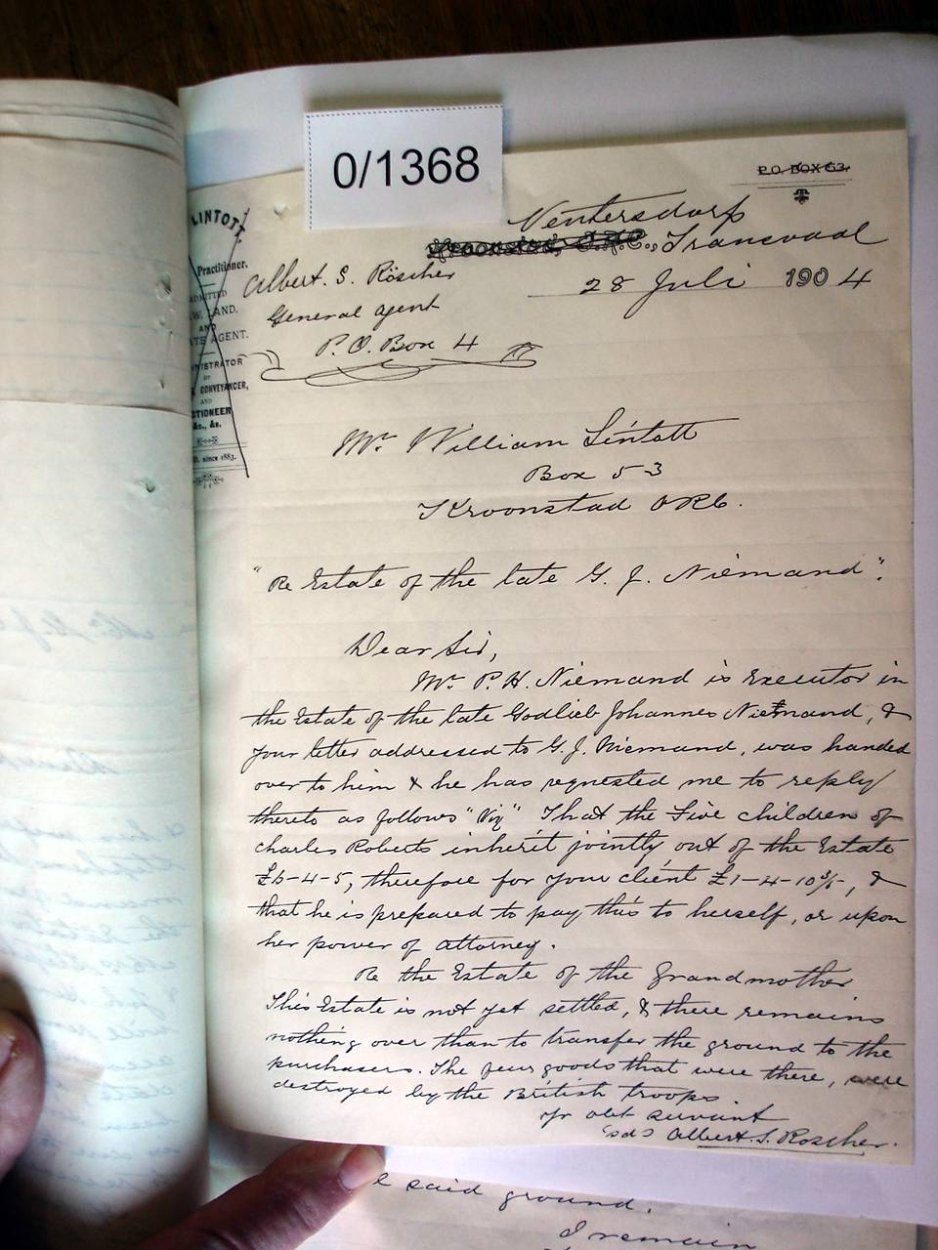 0/1368
P.O. BOX 53.
Ventersdorp
Transvaal
28 Juli 1904
LINTOTT,
Practitioner.
AND
AGENT.
CONVEYANCER,
AND
&c., &c.
since 1883.
Albert. S. Röscher
General agent
P.O. Box 4
Mr William Lintott
Box 53
Kroonstad ORC.
"Re Estate of the late G. J. Niemand".
Dear Sir,
Mr P. H. Niemand is Executor in
the Estate of the late Godlieb Johannes Niemand, &
your letter addressed to G. J. Niemand, was handed
over to him & he has requested me to reply
thereto as follows "Viz" That the Five children of
Charles Roberts inherit jointly out of the Estate
£6-4-5, therefore for your client £1-4-10 3/5, &
that he is prepared to pay this to herself, or upon
her power of attorney.
Re the Estate of the Grandmother
This Estate is not yet settled, & there remains
nothing over than to transfer the ground to the
purchasers. The few goods that were there, were
destroyed by the British troops.
Yr obt servant
(sd) Albert. S. Roscher.
said ground.
I remain